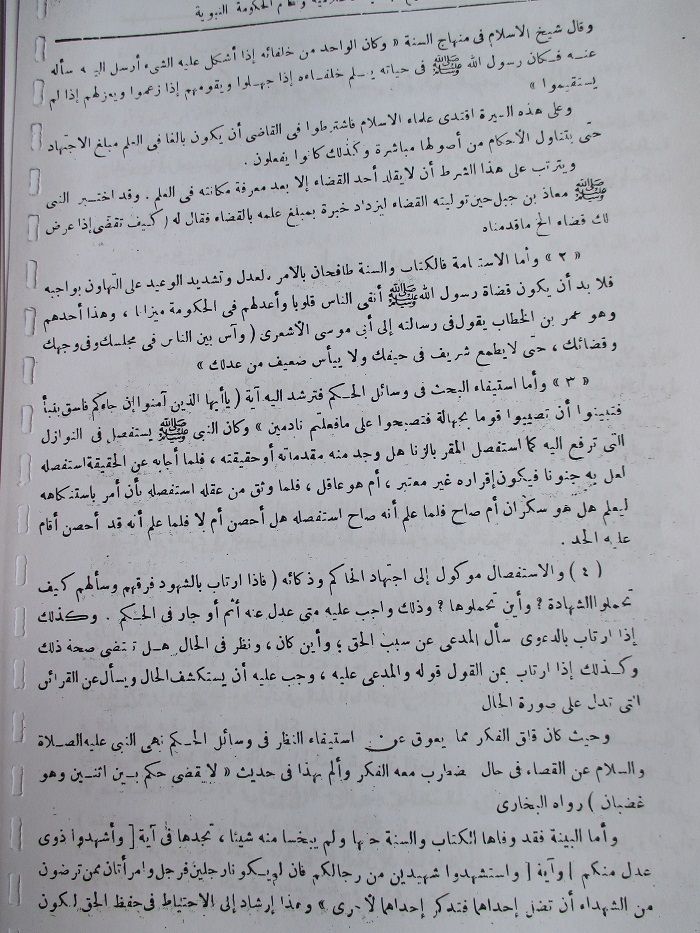 ونظام الحكومة النبوية
وقال شيخ الاسلام فى منهاج السنة « وكان الواحد من خلفائه إذا أشكل عليه الشىء أرسل اليه سأله
عنه فكان رسول الله ﷺ فى حياته يعلم خلفاءه إذا جهلوا ويقومهم إذا زعموا ويعزلهم إذا لم
يستقيموا »
وعلى هذه السيرة اقتدى علماء الاسلام فاشترطوا فى القاضى أن يكون بالغا فى العلم مبلغ الاجتهاد
حتى يتناول الأحكام من أصولها مباشرة وكذلك كانوا يفعلون .
ويترتب على هذا الشرط أن لا يقلد أحد القضاء إلا بعد معرفة مكانته فى العلم . وقد اختبر النبى
ﷺ معاذ بن جبل حين توليته القضاء ليزداد خبرة بمبلغ علمه بالقضاء فقال له ( كيف تقضى إذا عرض
لك قضاء الخ ماقدمناه
« ٢ » وأما الاستقامة فالكتاب والسنة طافحان بالأمر بالعدل وتشديد الوعيد على التهاون بواجبه
فلا بد أن يكون قضاة رسول الله ﷺ أتقى الناس قلوبا وأعدلهم فى الحكومة ميزانا ، وهذا أحدهم
وهو عمر بن الخطاب يقول فى رسالته إلى أبى موسى الأشعرى ( وآس بين الناس فى مجلسك وفى وجهك
وقضائك ، حتى لا يطمع شريف فى حيفك ولا ييأس ضعيف من عدلك »
« ٣ » وأما استيفاء البحث فى وسائل الحكم فترشد اليه آية ( ياأيها الذين آمنوا إن جاءكم فاسق بنبأ
فتبينوا أن تصيبوا قوما بجهالة فتصبحوا على مافعلتم نادمين » وكان النبى ﷺ يستفصل فى النوازل
التى ترفع اليه كما استفصل المقر بالزنا هل وجد منه مقدماته أو حقيقته ، فلما أجابه عن الحقيقة استفصله
لعل به جنونا فيكون إقراره غير معتبر ، أم هو عاقل ، فلما وثق من عقله استفصله بأن أمر باستنكاهه
ليعلم هل هو سكران أم صاح فلما علم أنه صاح استفصله هل أحصن أم لا فلما علم أنه قد أحصن أقام
عليه الحد .
( ٤ ) والاستفصال موكول إلى اجتهاد الحاكم وذكائه ( فاذا ارتاب بالشهود فرقهم وسألهم كيف
تحملوا الشهادة ? وأين تحملوها ? وذلك واجب عليه متى عدل عنه أثم أو جار فى الحكم . وكذلك
إذا ارتاب بالدعوى سأل المدعى عن سبب الحق ؛ وأين كان ، ونظر فى الحال هل تقتضى صحة ذلك
وكذلك إذا ارتاب بمن القول قوله والمدعى عليه ، وجب عليه أن يستكشف الحال ويسأل عن القرائن
التى تدل على صورة الحال
وحيث كان قلق الفكر مما يعوق عن استيفاء النظر فى وسائل الحكم نهى النبى عليه الصلاة
والسلام عن القضاء فى حال يضطرب معه الفكر وألم بهذا فى حديث « لا يقضى حكم بين اثنين وهو
غضبان ) رواه البخارى
وأما البينة فقد وفاها الكتاب والسنة حقها ولم يبخسا منه شيئا ، تجدها فى آية [ وأشهدوا ذوى
عدل منكم ] وآية [ واستشهدوا شهيدين من رجالكم فان لم يكونا رجلين فرجل وامرأتان ممن ترضون
من الشهداء أن تضل إحداهما فتذكر إحداهما الأخرى » وهذا إرشاد إلى الاحتياط فى حفظ الحق لكون